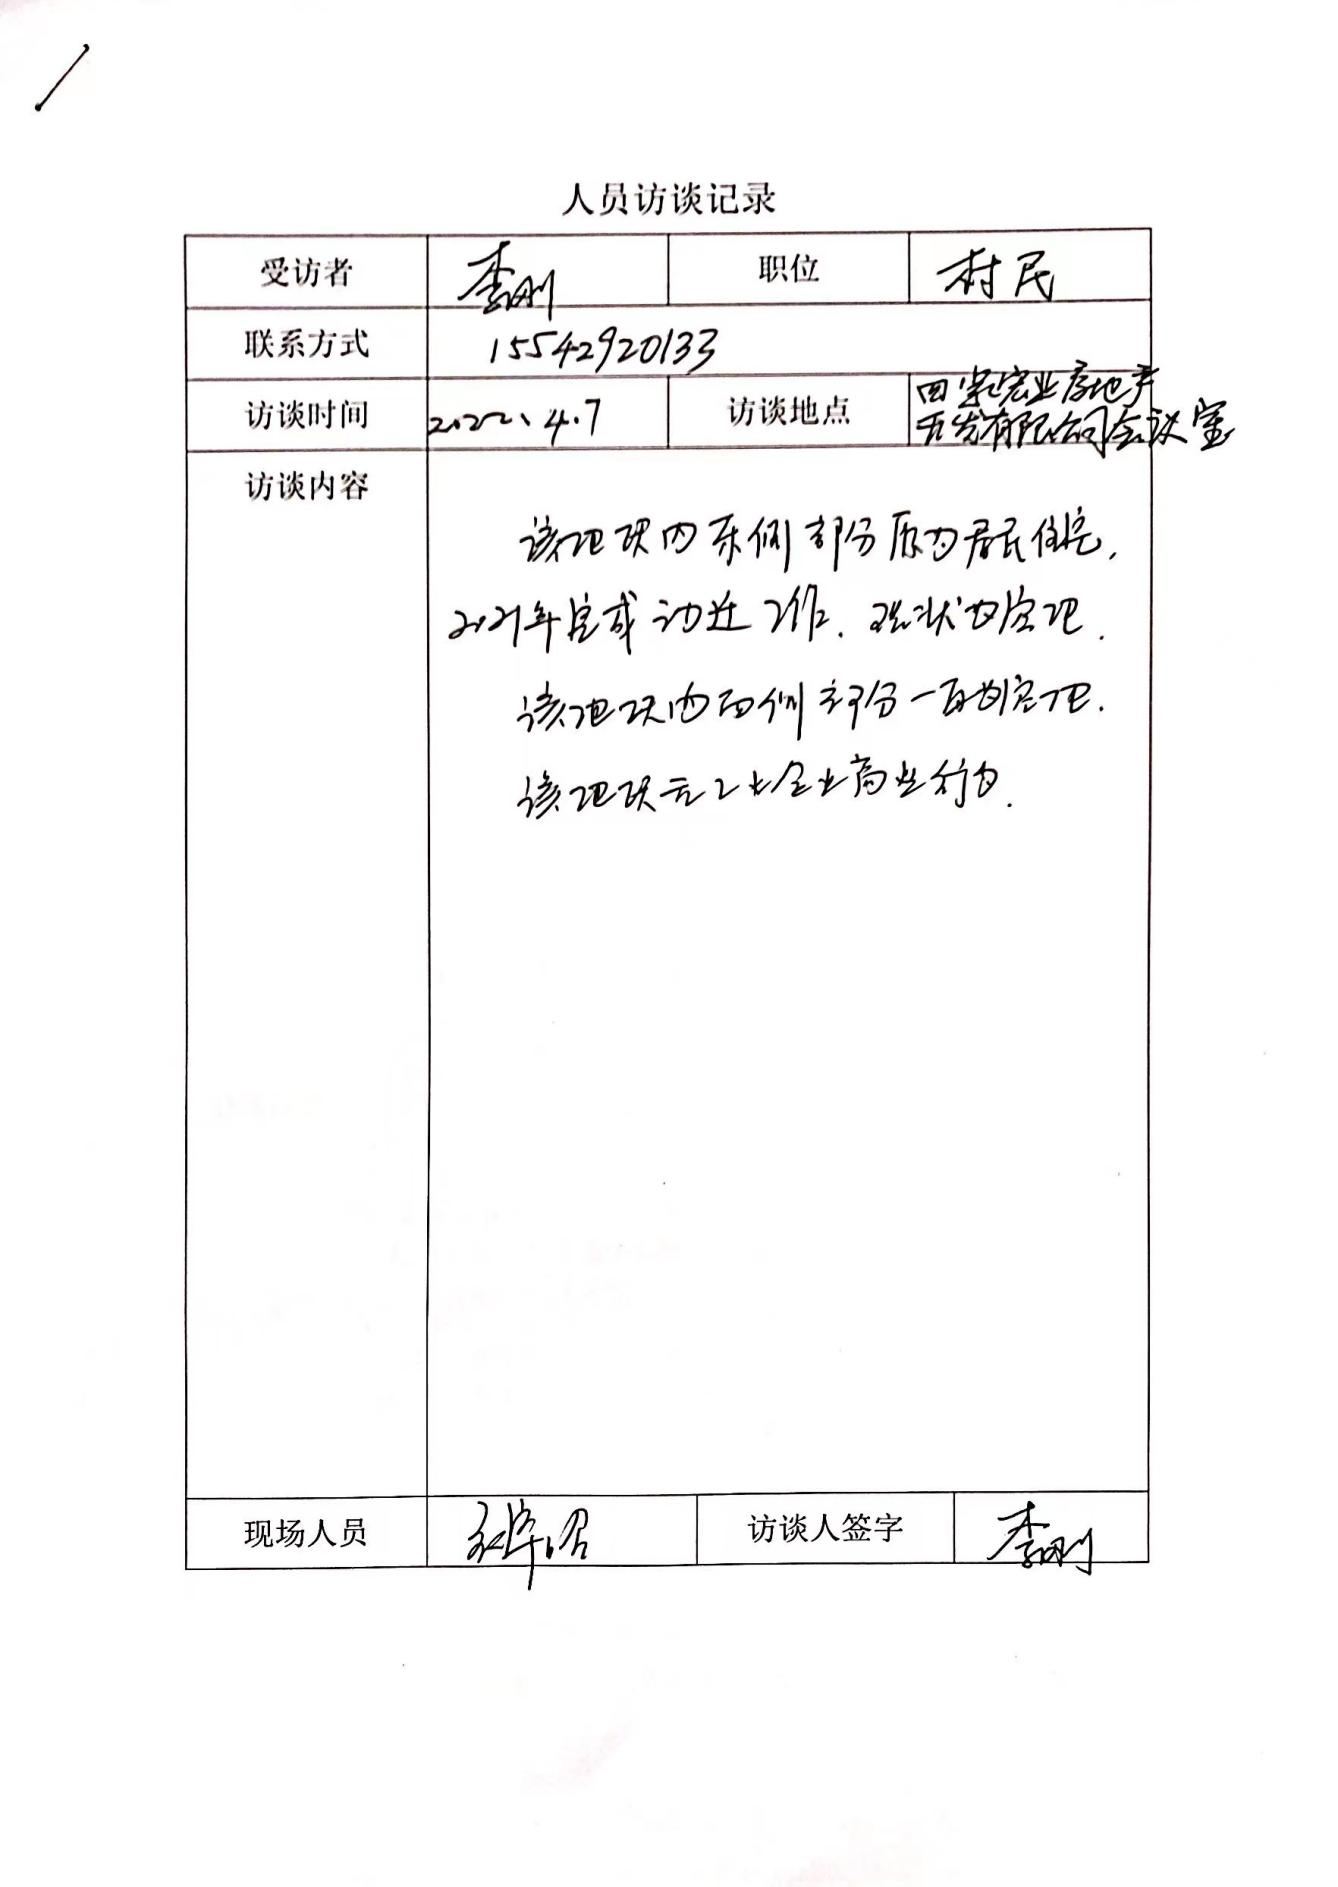 人员访谈记录
受访者 李刚 职位 村民
联系方式 15542920133
访谈时间 2022、4.7 访谈地点 宏业房地产
开发有限公司会议室
访谈内容
该地块内东侧部分原为居民住宅，
2021年完成动迁工作．现状为空地．
该地块内西侧部分一直为空地．
该地块无工业企业商业行为．
现场人员 访谈人签字 李刚